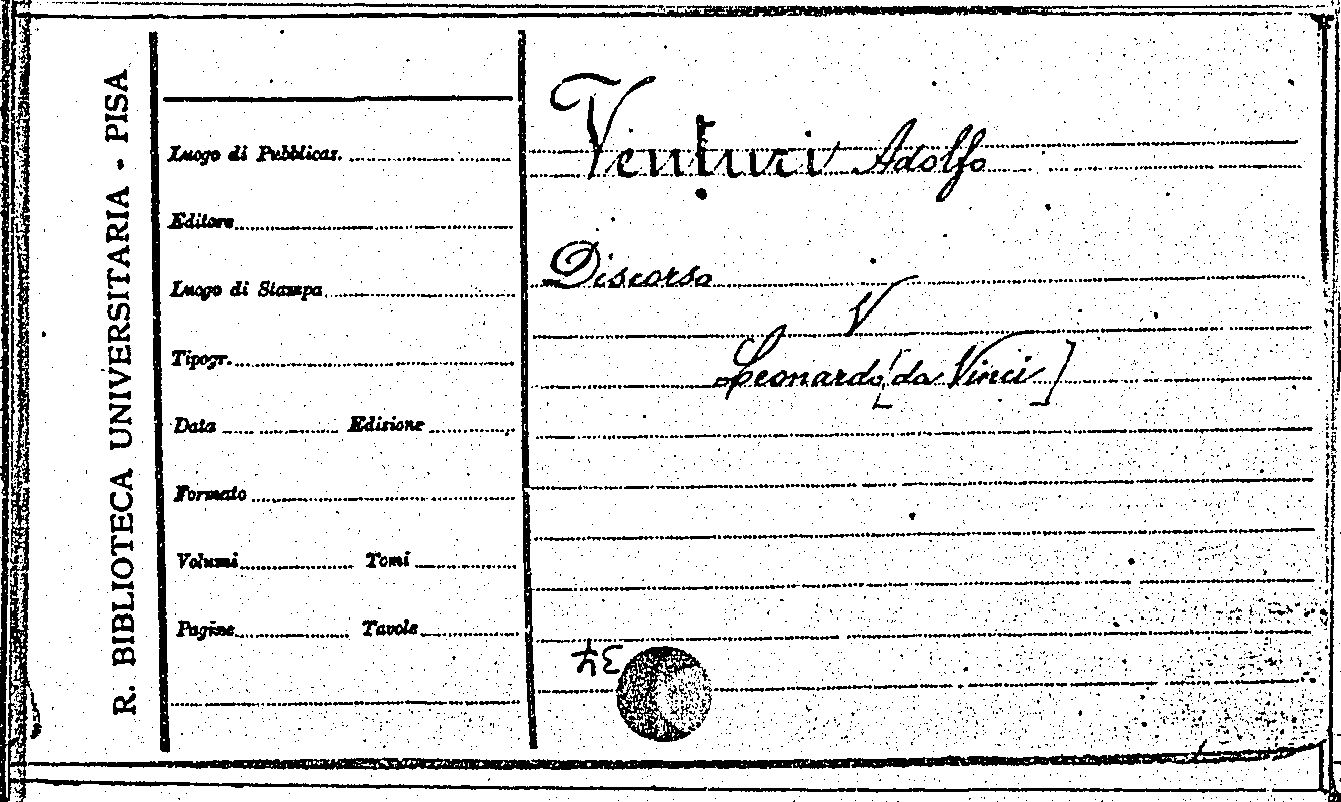 R. BIBLIOTECA UNIVERSITARIA - PISA
Luogo di Pubblicaz.
Editore
Luogo di Stampa
Tipogr.
Data Edizione
Formato
Volumi Tomi
Pagine Tavole
Venturi Adolfo
Discorso
V
Leonardo [da Vinci]